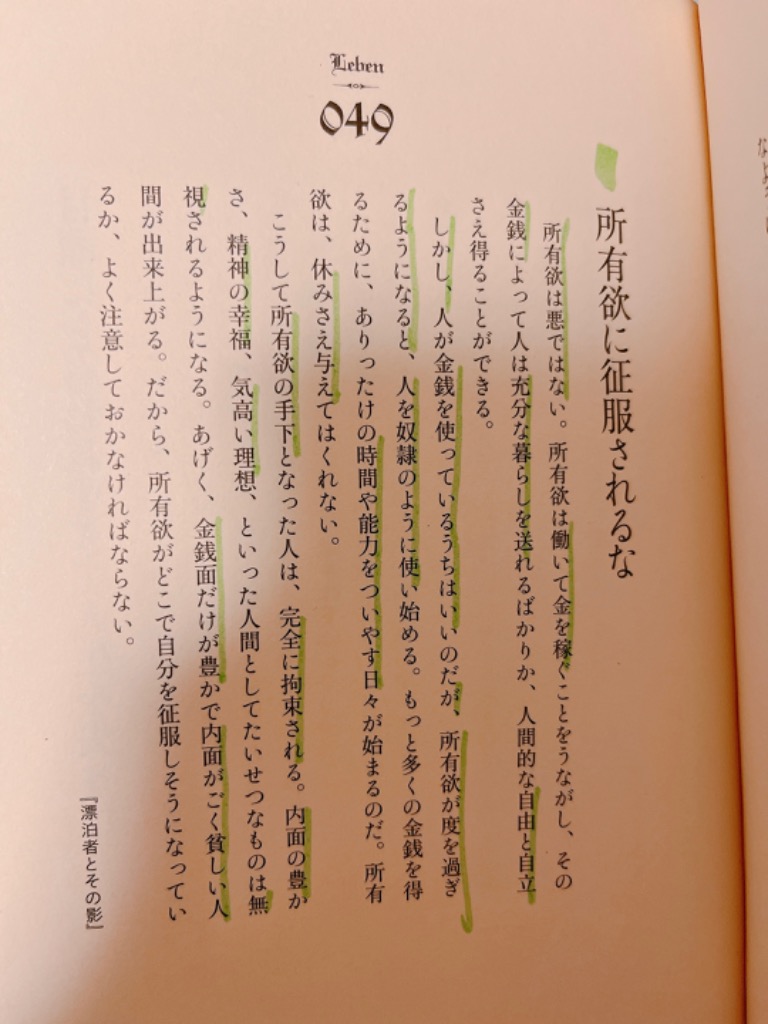 Leben
049
所有欲に征服されるな
所有欲は悪ではない。所有欲は働いて金を稼ぐことをうながし、その
金銭によって人は充分な暮らしを送れるばかりか、人間的な自由と自立
さえ得ることができる。
しかし、人が金銭を使っているうちはいいのだが、所有欲が度を過ぎ
るようになると、人を奴隷のように使い始める。もっと多くの金銭を得
るために、ありったけの時間や能力をついやす日々が始まるのだ。所有
欲は、休みさえ与えてはくれない。
こうして所有欲の手下となった人は、完全に拘束される。内面の豊か
さ、精神の幸福、気高い理想、といった人間としてたいせつなものは無
視されるようになる。あげく、金銭面だけが豊かで内面がごく貧しい人
間が出来上がる。だから、所有欲がどこで自分を征服しそうになってい
るか、よく注意しておかなければならない。
『漂泊者とその影』